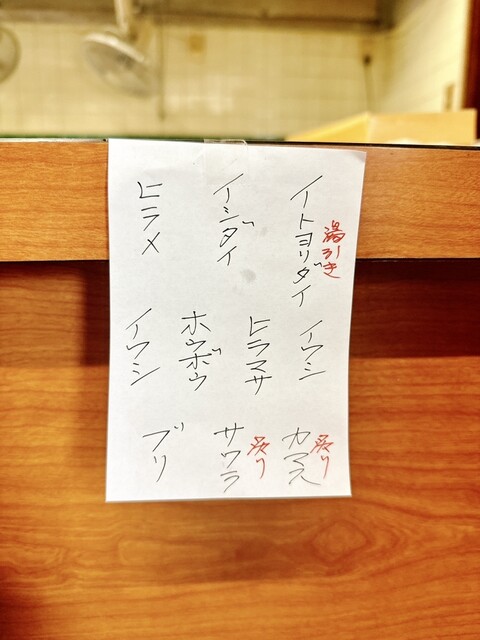 湯引き
イトヨリダイ
イシダイ
ヒラメ
イワシ
ヒラマサ
ホウボウ
イワシ
炙り
カマス
炙り
サワラ
ブリ